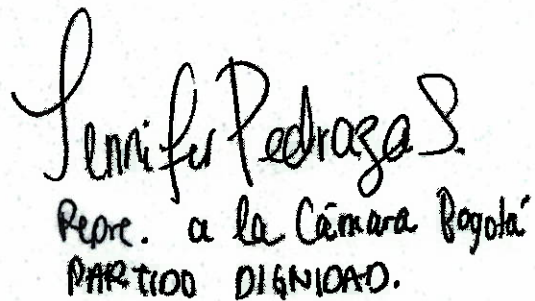 Jennifer Pedraza S.
Repre. a la Cámara Bogotá
PARTIDO DIGNIDAD.